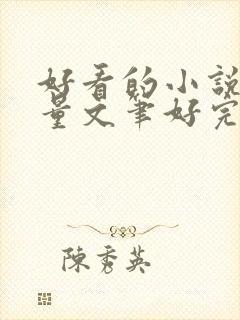 好看的小說
量文筆好完
陳秀英